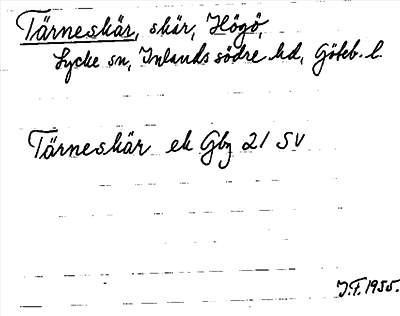 Tärneskär, skär, Högö,
Lycke sn, Inlands södre hd, Göteb. l.
Tärneskär ek Gbg 21 SV
J.F. 1955.